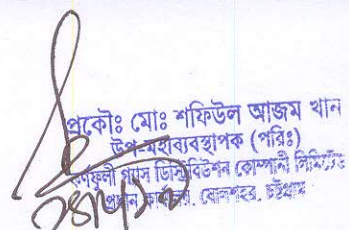 প্রকৌঃ মোঃ শফিউল আজম খান
উপ-মহাব্যবস্থাপক (পরিঃ)
কর্ণফুলী গ্যাস ডিস্ট্রিবিউশন কোম্পানী লিমিটেড
প্রধান কার্যালয়, ষোলশহর, চট্টগ্রাম